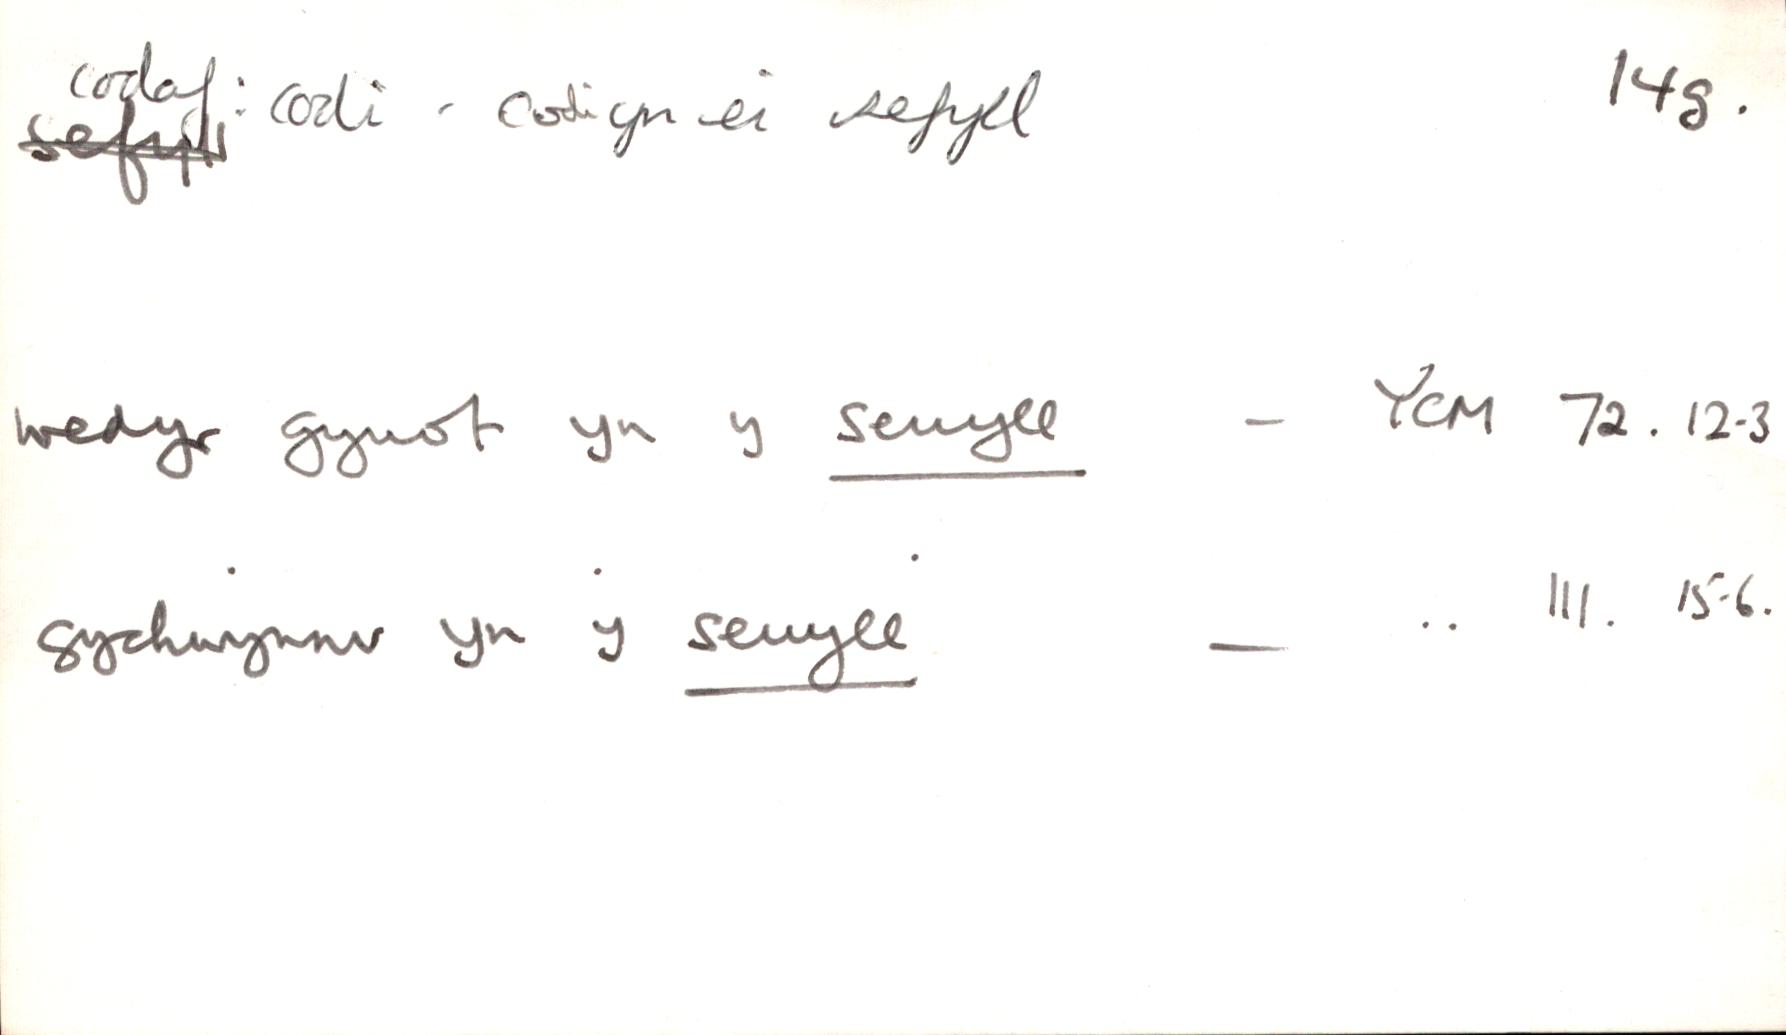 codaf: codi - codi yn ei sefyll 14g.
sefyll
wedyr gyuot yn y seuyll - YCM 72. 12-3
gychwynnv yn y seuyll - .. 111. 15-6.